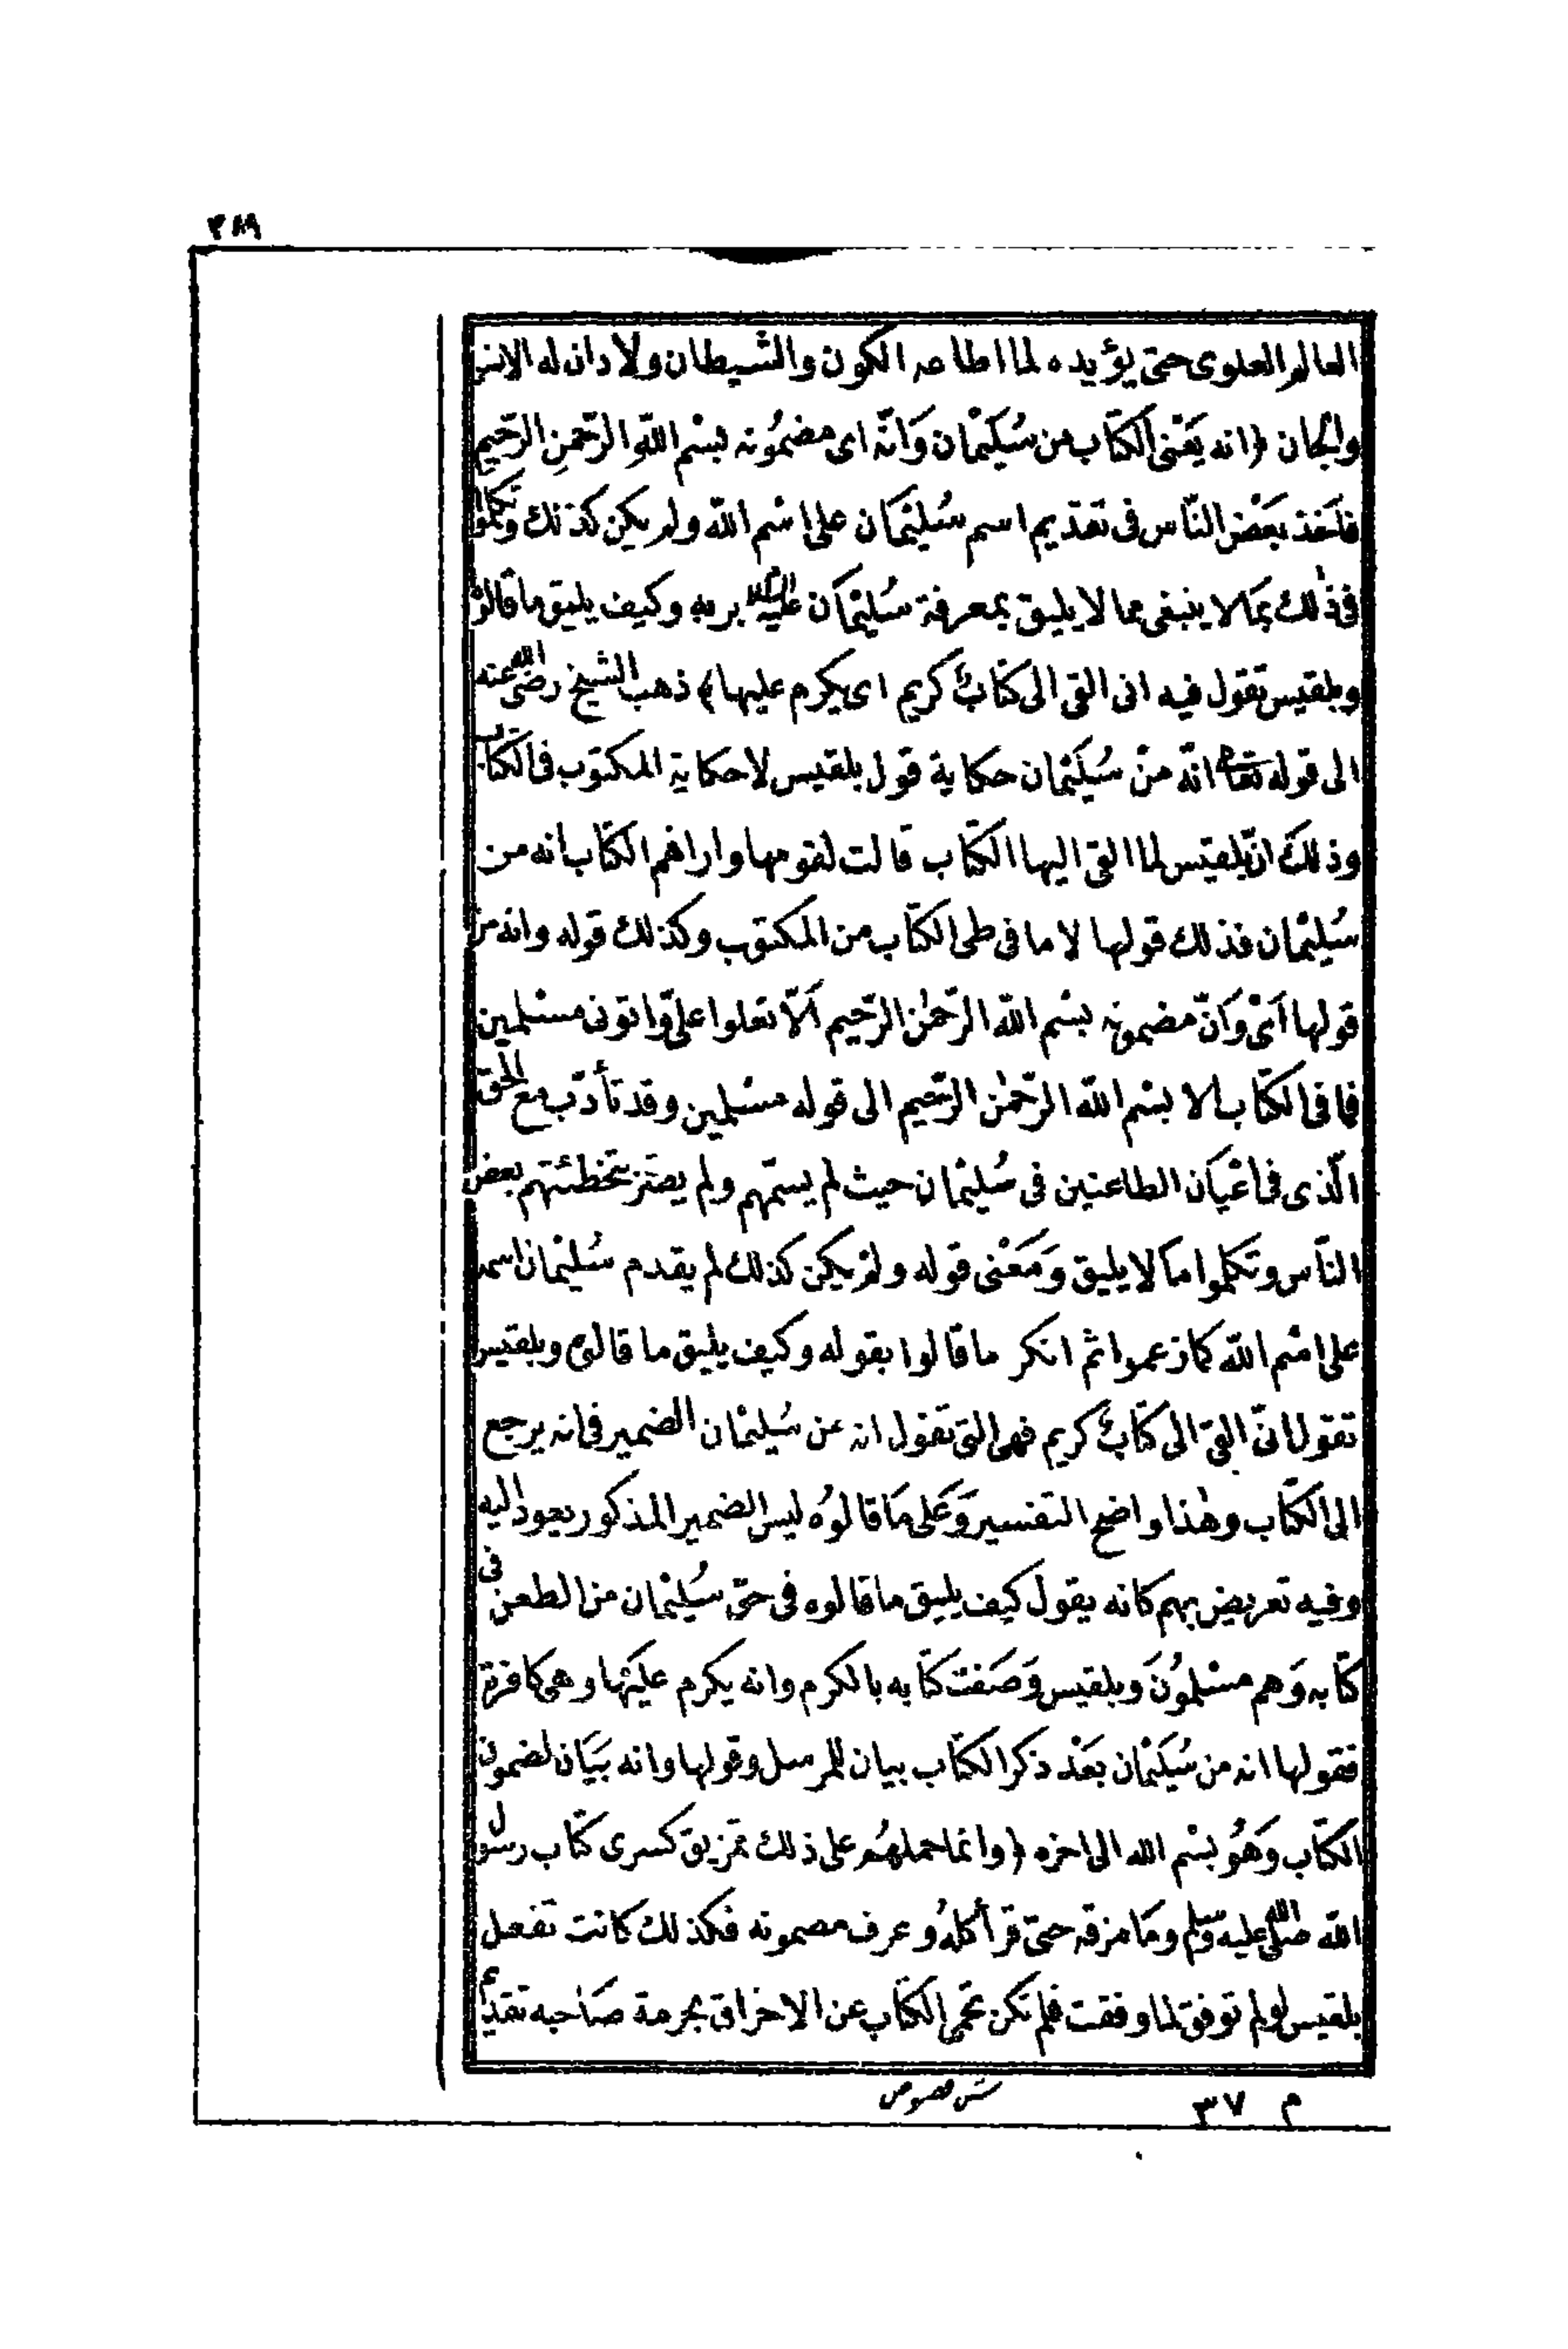 ٣٨٩
العالم العلوى حتى يؤيده لما اطاعه الكون والشيطان ولا دان له الانس
والجان ﴿انه يَعْنى الكتاب من سُليْمان وَانّه اى مضمُونه بسْم اللّه الرّحمنِ الرّحيمِ
فاَخذ بَعْض النّاس فى تقديم اسم سُليْمَان على اسْم اللّه ولم يكن كذلك وتكلموا
فى ذٰلك بمَا لا ينبغى مما لا يليق بمعرفة سُليْمَان عليه السلام بربه وكيف يليق ما قالوْ
وبلقيس تقول فيه انى القى الى كتابٌ كريم اى يكرم عليها﴾ ذهب الشيخ رضى الله عنه
الى قوله تعالى انّه منْ سُليْمان حكاية قول بلقيس لا حكاية المكتوب فى الكتاب
وذلكَ انّ بلقيس لما القى اليها الكتاب قالت لقومها واراهم الكتاب انه من
سُليْمان فذلك قولها لا ما فى طى الكتاب من المكتوب وكذلك قوله وانه من
قولها اَىْ وَانّ مضمونه بسْم اللّه الرّحمٰن الرّحيم اَلّا تعلوا علىّ واتونى مسْلمين
فما فى الكتاب الا بسْم اللّه الرّحمٰن الرّحيم الى قوله مسْلمين وقد تأدّب مع الحق
الّذى فى اعْيَان الطاعنين فى سُليْمان حيث لم يسمّهم ولم يصرّح بتخطئتهم بعض
النّاس وتكلموا مَا لا يليق وَمَعْنى قوله ولمْ يكن كذلك لم يقدم سُليْمان اسمه
على اسْم اللّه كما زعموا ثم انكر ما قالوا بقوله وكيف يليق ما قالوه وبلقيس
تقول انّى القى الى كتابٌ كريم فهى التى تقول انه عن سُليْمان الضمير فى انه يرجع
الى الكتاب وهٰذا واضح التفسير وَعَلى مَا قالوُه ليس الضمير المذكور يعود اليه
وفيه تعريض بهم كانه يقول كيف يليق ما قالوه فى حق سُليْمان من الطعن فى
كتابه وَهم مسْلموُنَ وبلقيس وَصَفت كتابه بالكرم وانه يكرم عليْها وهى كافرة
فقولها انه من سُليْمان بَعْد ذكر الكتاب بيان للمرسل وقولها وانه بَيَان لمضمون
الكتاب وَهُو بسْم الله الى اخره ﴿وانما حملهُم على ذلك تمزيق كسرى كتاب رسول
اللّه صلى الله عليه وسلم ومَا مزقه حتى قرأ كلهُ وعرف مضمونه فكذلك كانت تفعل
بلقيس لو لم توفق لما وفقت فلم تكن تحمى الكتاب عن الاخراق بحرمة صَاحبه تقديم
م ٣٧ فصوص